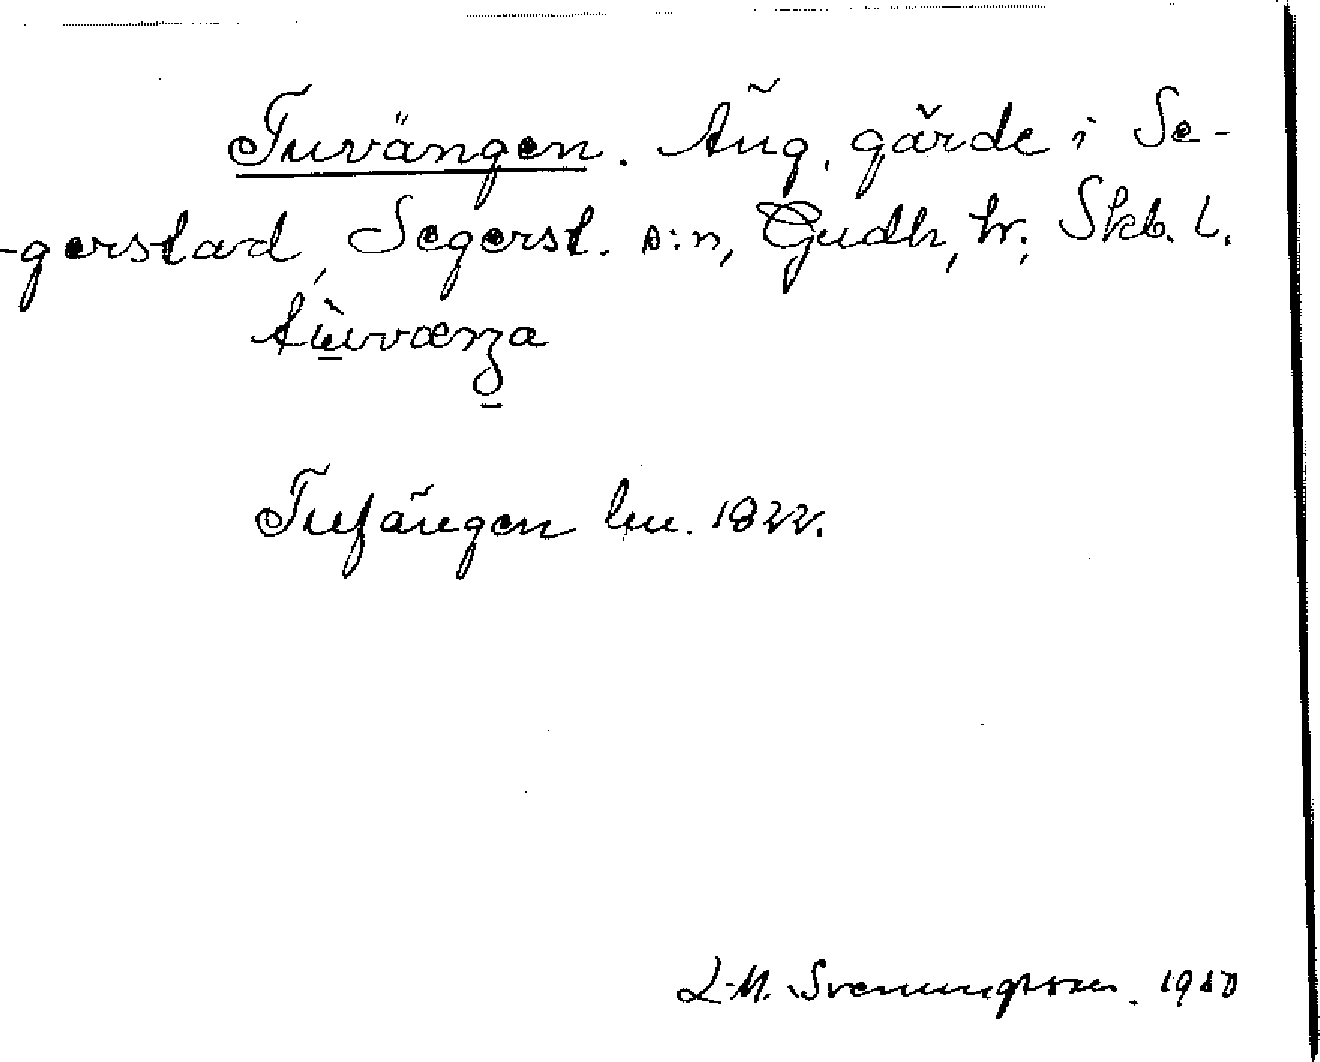 Tuvängen. Äng, gärde i Se-
-gerstad, Segerst. s:n, Gudh, hr. Skb. L.
Tufängen lm. 1822.
L-M. Svenungsson. 1910